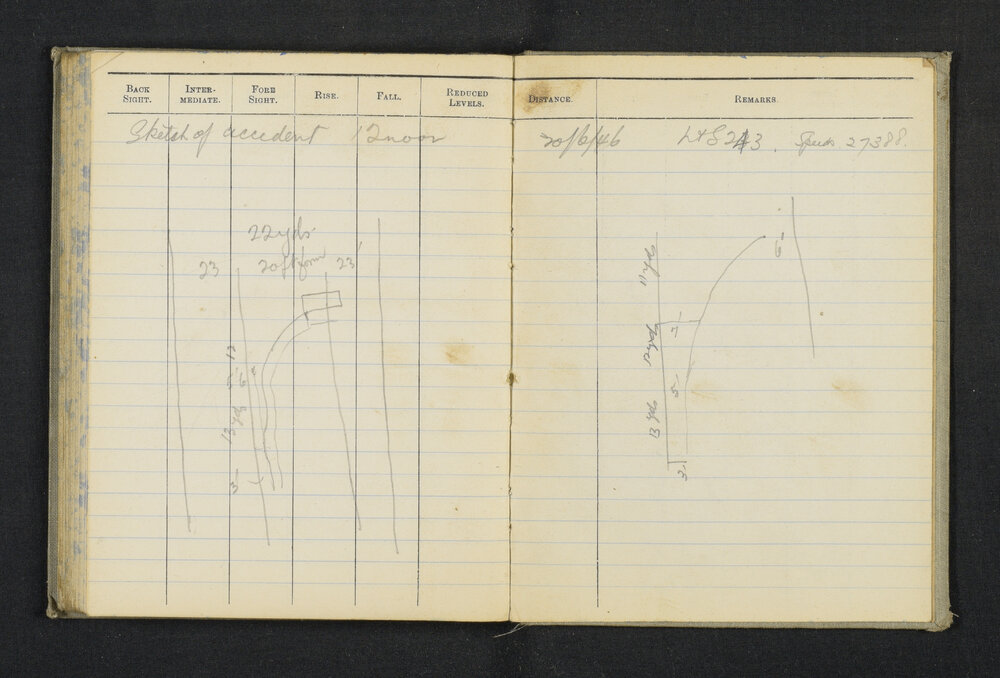 BACK SIGHT. INTER-MEDIATE. FORE SIGHT. RISE. FALL. REDUCED LEVELS. DISTANCE. REMARKS.
Sketch of accident 12 noon 20/6/46 27388.
22 yds
23 20 ft 23
12
6
13 yds
3
11 yds
6
12 yds
5
13 yds
3